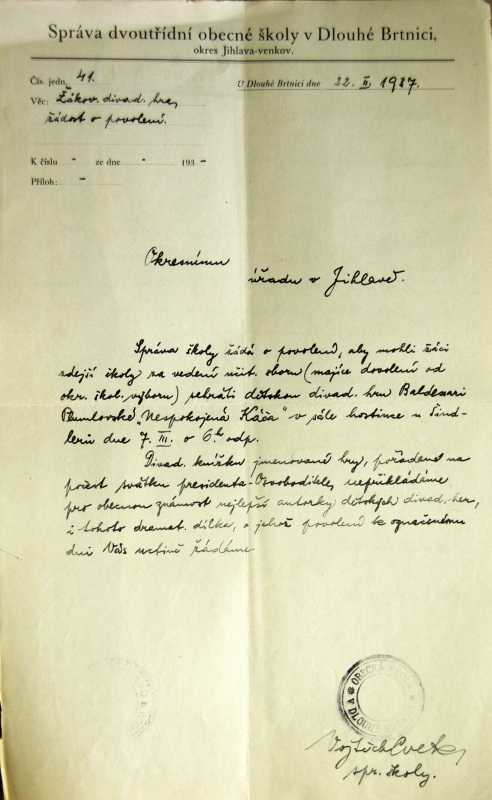 Správa dvoutřídní obecné školy v Dlouhé Brtnici,
okres Jihlava-venkov.
Čís. jedn. 41.
U Dlouhé Brtnici dne 22. II. 1937.
Věc: Žákov. divad. hra,
žádost o povolení.
K číslu - ze dne - 193 -
Příloh: -
Okresnímu
úřadu v Jihlavě.
Správa školy žádá o povolení, aby mohli žáci
zdejší školy za vedení učit. sboru (majíce dovolení od
okr. škol. výboru) sehráti dětskou divad. hru Baldessari
Plumlovské „Nespokojená Káča" v sále hostince u Šind-
lerů dne 7. III. o 6. h odp.
Divad. knížku jmenované hry, pořádané na
počest svátku presidenta-Osvoboditele, nepřikládáme
pro obecnou známost nejlepší autorky dětských divad. her,
i tohoto dramat. dílka, o jehož povolení k označenému
dni Vás uctivě žádáme.
OBECNÁ
DLOUHÉ
Vojtěch Cvek,
spr. školy.